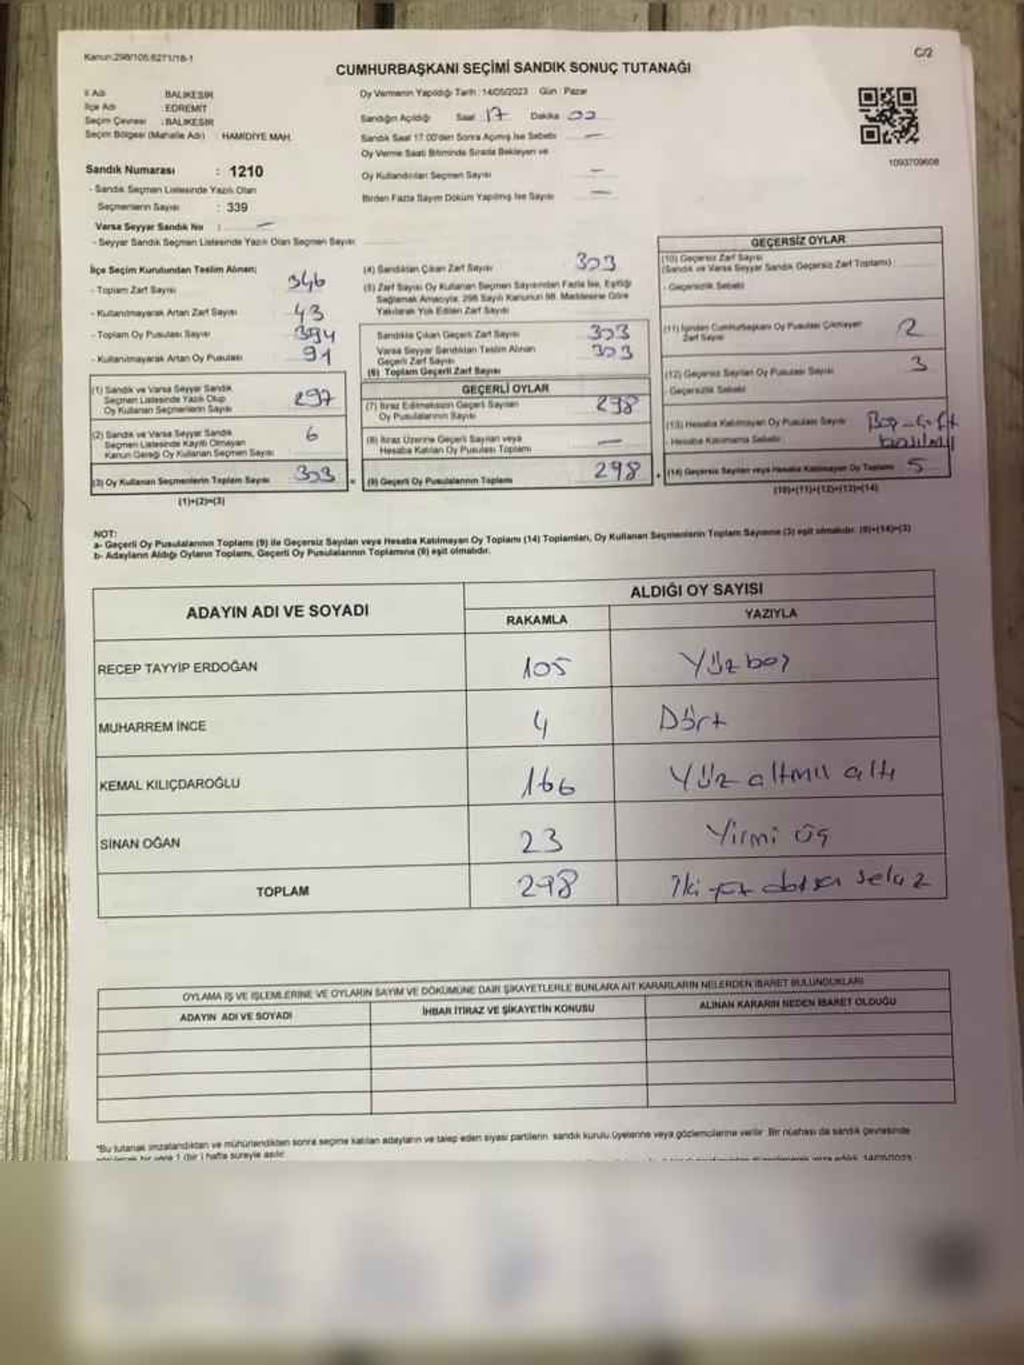 Kanun:298/105.6271/18-1
C/2
CUMHURBAŞKANI SEÇİMİ SANDIK SONUÇ TUTANAĞI
İl Adı BALIKESİR
İlçe Adı : EDREMİT
Seçim Çevresi : BALIKESİR
Seçim Bölgesi (Mahalle Adı) HAMİDİYE MAH.
Sandık Numarası : 1210
- Sandık Seçmen Listesinde Yazılı Olan
Seçmenlerin Sayısı : 339
Varsa Seyyar Sandık No : —
- Seyyar Sandık Seçmen Listesinde Yazılı Olan Seçmen Sayısı
Oy Vermenin Yapıldığı Tarih : 14/05/2023 Gün : Pazar
Sandığın Açıldığı Saat 17 Dakika 00
Sandık Saat 17.00'den Sonra Açılmış İse Sebebi —
Oy Verme Saati Bitiminde Sırada Bekleyen ve
Oy Kullandırılan Seçmen Sayısı —
Birden Fazla Sayım Döküm Yapılmış İse Sayısı —
1093709608
İlçe Seçim Kurulundan Teslim Alınan;
- Toplam Zarf Sayısı 346
- Kullanılmayarak Artan Zarf Sayısı 43
- Toplam Oy Pusulası Sayısı 394
- Kullanılmayarak Artan Oy Pusulası 91
(1) Sandık ve Varsa Seyyar Sandık
Seçmen Listesinde Yazılı Olup
Oy Kullanan Seçmenlerin Sayısı 297
(2) Sandık ve Varsa Seyyar Sandık
Seçmen Listesinde Kayıtlı Olmayan
Kanun Gereği Oy Kullanan Seçmen Sayısı 6
(3) Oy Kullanan Seçmenlerin Toplam Sayısı 303 =
(1)+(2)=(3)
(4) Sandıktan Çıkan Zarf Sayısı 303
(5) Zarf Sayısı Oy Kullanan Seçmen Sayısından Fazla İse, Eşitliği
Sağlamak Amacıyla, 298 Sayılı Kanunun 98. Maddesine Göre
Yakılarak Yok Edilen Zarf Sayısı
Sandıkta Çıkan Geçerli Zarf Sayısı 303
Varsa Seyyar Sandıktan Teslim Alınan
Geçerli Zarf Sayısı 303
(6) Toplam Geçerli Zarf Sayısı
GEÇERLİ OYLAR
(7) İtiraz Edilmeksizin Geçerli Sayılan
Oy Pusulalarının Sayısı 298
(8) İtiraz Üzerine Geçerli Sayılan veya
Hesaba Katılan Oy Pusulası Toplamı —
(9) Geçerli Oy Pusulalarının Toplamı 298 +
GEÇERSİZ OYLAR
(10) Geçersiz Zarf Sayısı
(Sandık ve Varsa Seyyar Sandık Geçersiz Zarf Toplamı) :
- Geçersizlik Sebebi
(11) İçinden Cumhurbaşkanı Oy Pusulası Çıkmayan
Zarf Sayısı 2
(12) Geçersiz Sayılan Oy Pusulası Sayısı 3
- Geçersizlik Sebebi
(13) Hesaba Katılmayan Oy Pusulası Sayısı Boş - Çift
- Hesaba Katılmama Sebebi
(14) Geçersiz Sayılan veya Hesaba Katılmayan Oy Toplamı 5
(10)+(11)+(12)+(13)=(14)
NOT:
a- Geçerli Oy Pusulalarının Toplamı (9) ile Geçersiz Sayılan veya Hesaba Katılmayan Oy Toplamı (14) Toplamları, Oy Kullanan Seçmenlerin Toplam Sayısına (3) eşit olmalıdır. (9)+(14)=(3)
b- Adayların Aldığı Oyların Toplamı, Geçerli Oy Pusulalarının Toplamına (9) eşit olmalıdır.
ADAYIN ADI VE SOYADI
ALDIĞI OY SAYISI
RAKAMLA YAZIYLA
RECEP TAYYİP ERDOĞAN 105 Yüz beş
MUHARREM İNCE 4 Dört
KEMAL KILIÇDAROĞLU 166 Yüz altmış altı
SİNAN OĞAN 23 Yirmi üç
TOPLAM 298 İki yüz doksan sekiz
OYLAMA İŞ VE İŞLEMLERİNE VE OYLARIN SAYIM VE DÖKÜMÜNE DAİR ŞİKAYETLERLE BUNLARA AİT KARARLARIN NELERDEN İBARET BULUNDUKLARI
ADAYIN ADI VE SOYADI İHBAR İTİRAZ VE ŞİKAYETİN KONUSU ALINAN KARARIN NEDEN İBARET OLDUĞU
*Bu tutanak imzalandıktan ve mühürlendikten sonra seçime katılan adayların ve talep eden siyasi partilerin sandık kurulu üyelerine veya gözlemcilerine verilir. Bir nüshası da sandık çevresinde
bir yere 1 (bir) hafta süreyle asılır.